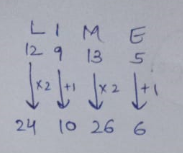 L I M E
12 9 13 5
×2 +1 ×2 +1
24 10 26 6